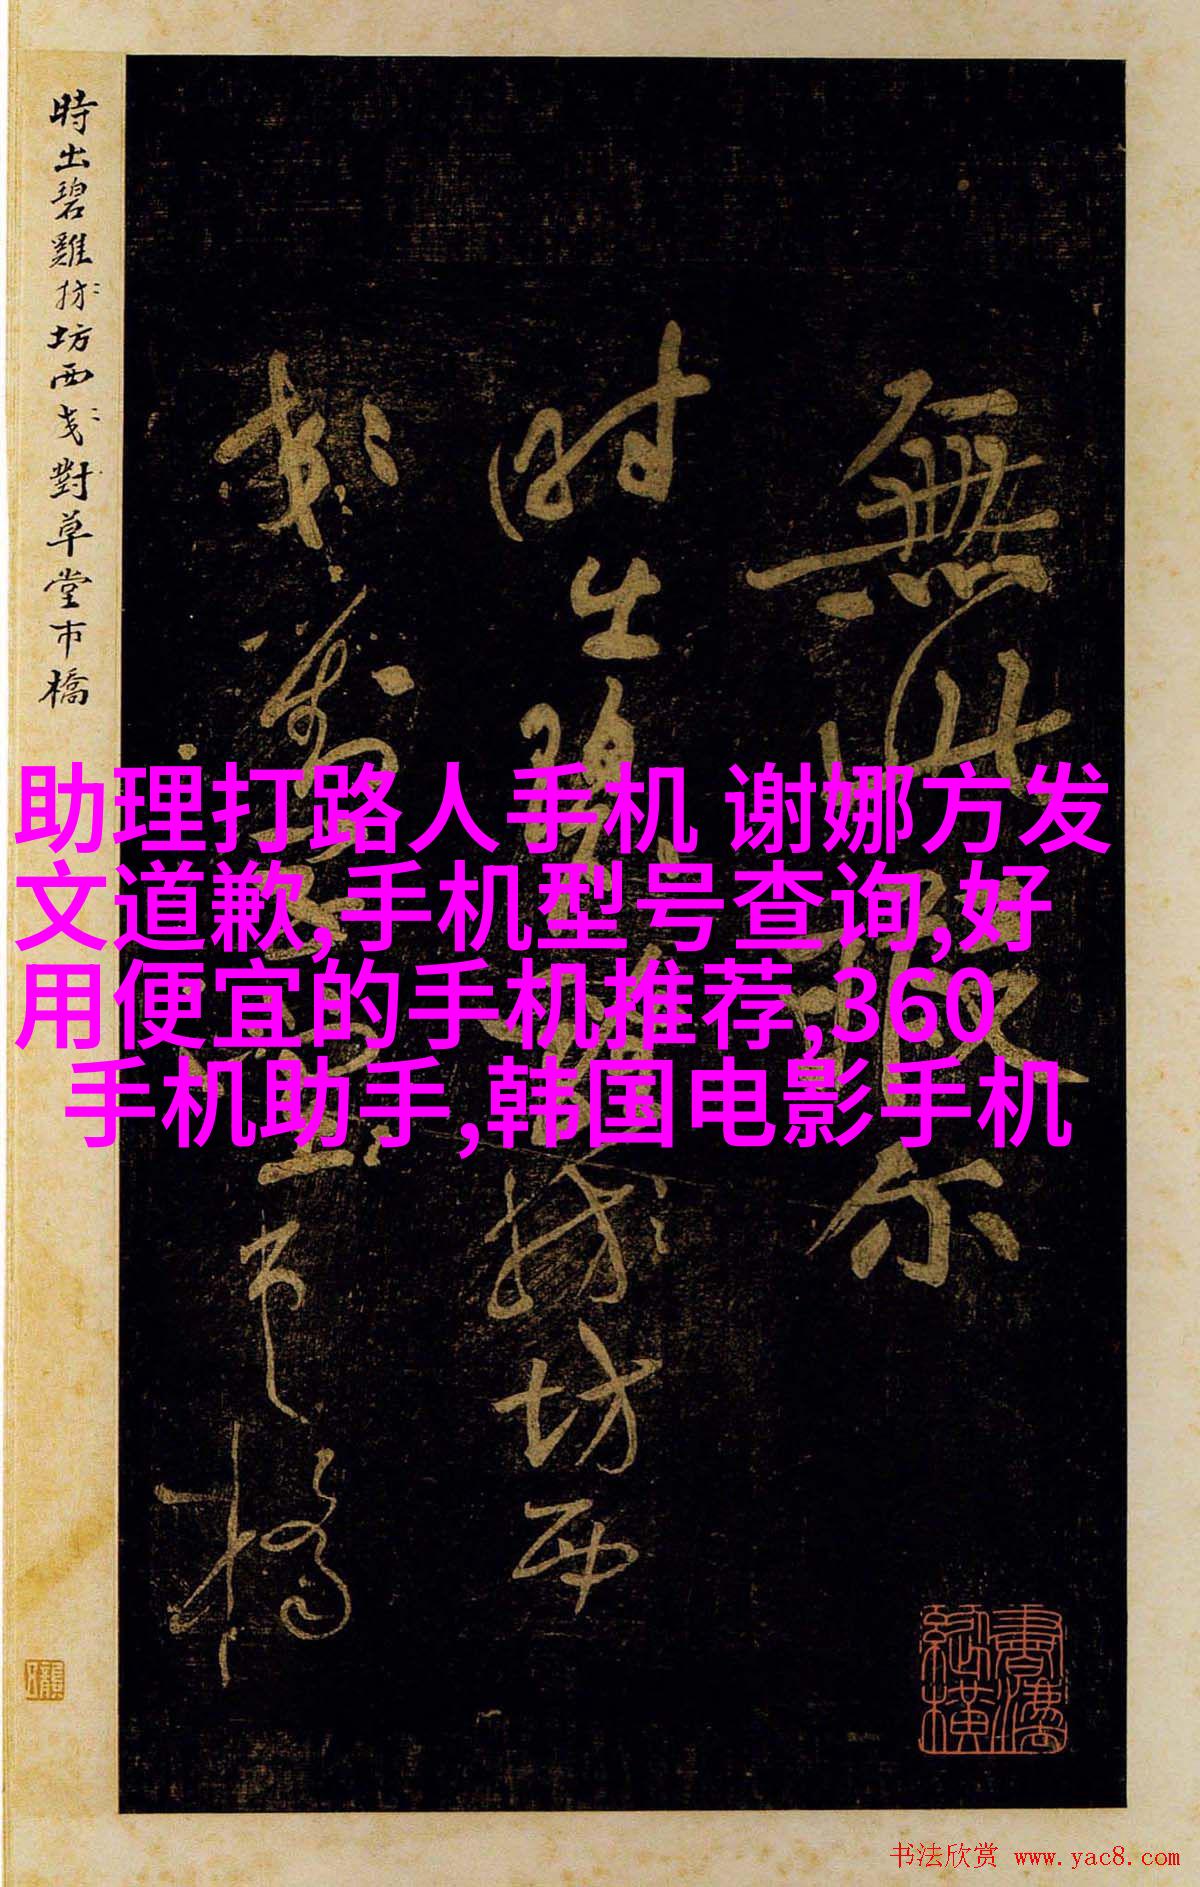 時出碧雞坊坊西郊對草堂市橋
無此暇尔
时出碧鸡坊坊西
市橋
助理打路人手机 谢娜方发
文道歉,手机型号查询,好
用便宜的手机推荐,360
手机助手,韩国电影手机
书法欣赏 www.yac8.com